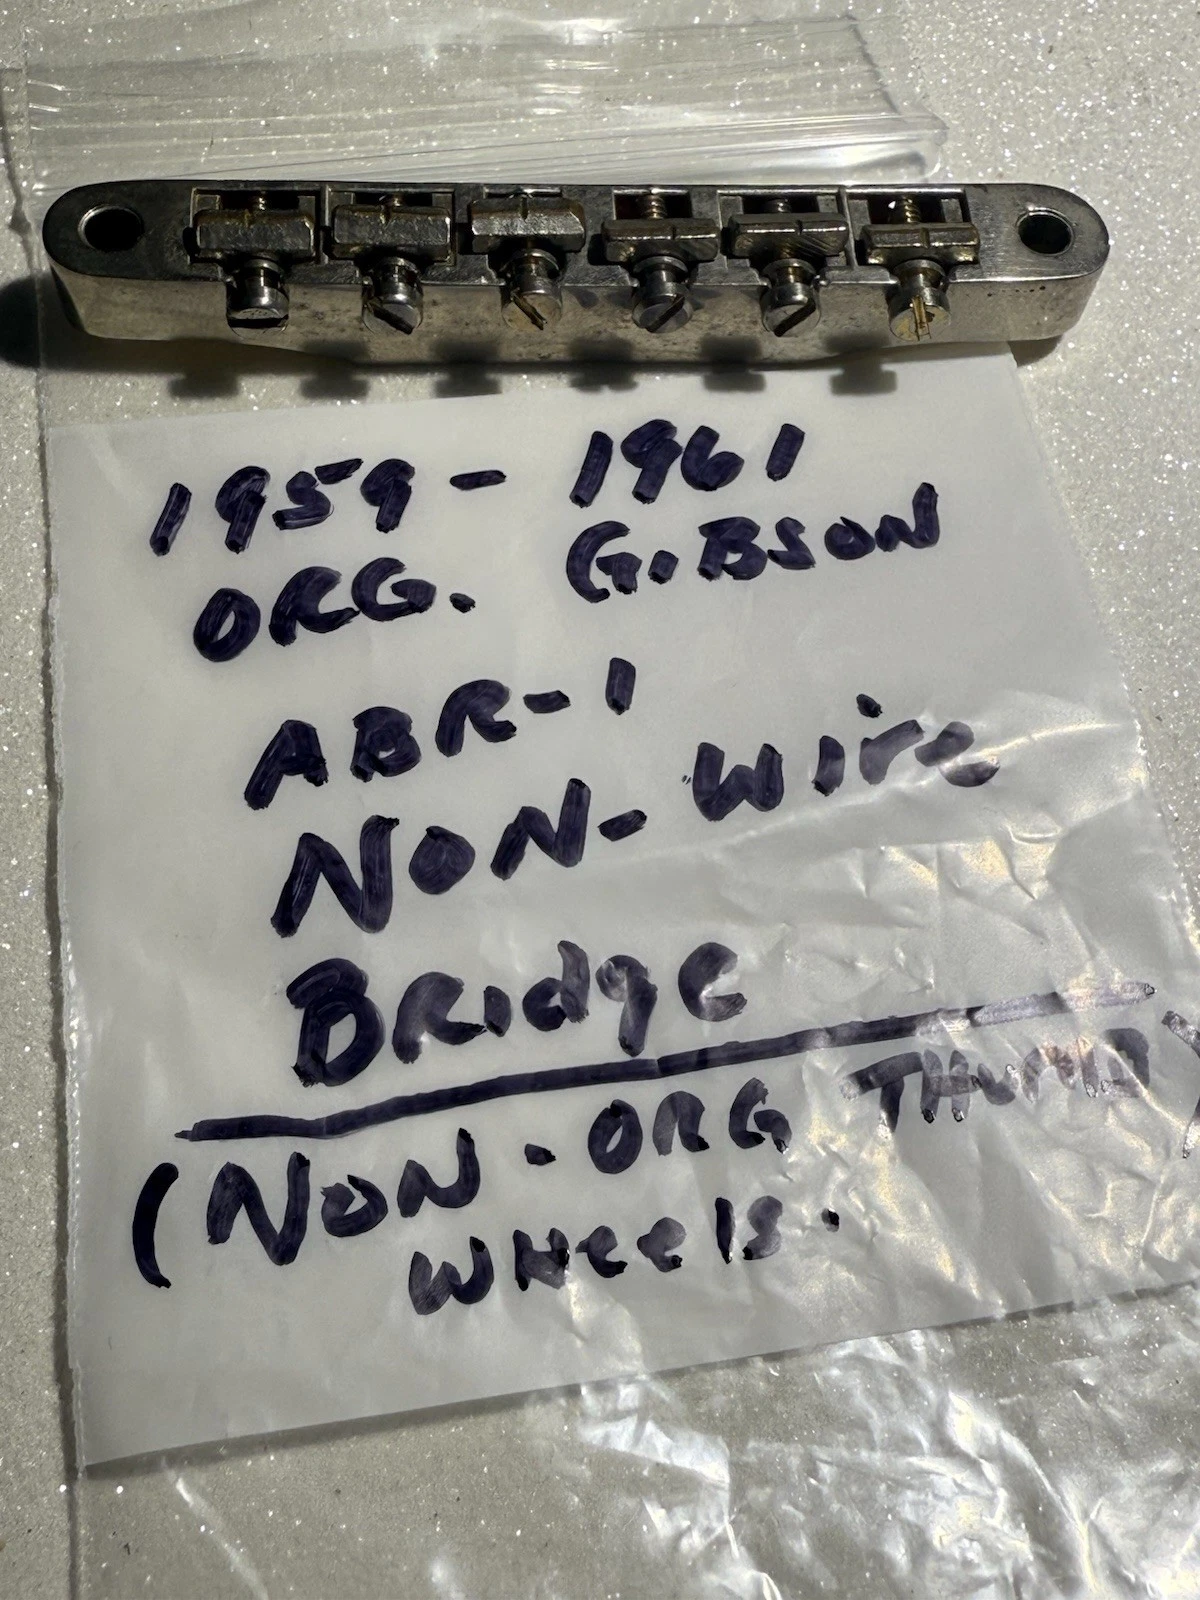 1959 - 1961
ORG. GIBSON
ABR-1
NON-wire
Bridge
(NON-ORG THUMB)
WHeels.